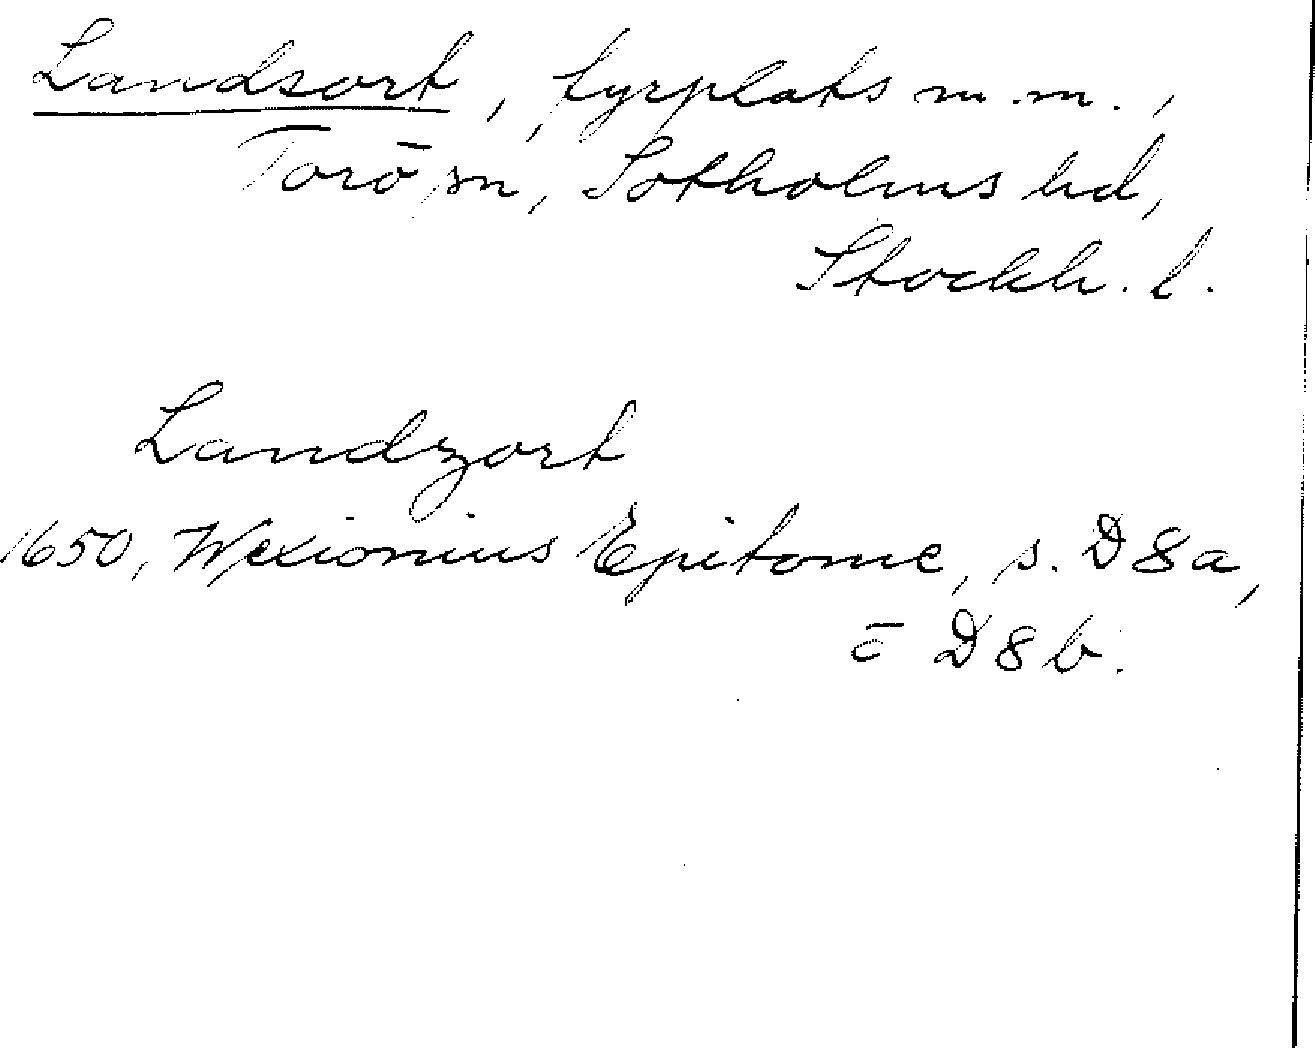 Landsort, fyrplats m.m.,
Torö sn, Sotholms hd,
Stockh. l.
Landzort
1650, Wexionius Epitome, s. D8a,
o D8b.